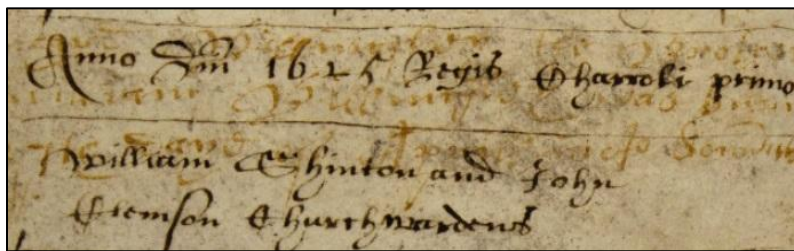 Anno Dni 1625 Regis Charoli primo
William Shinton and John
Clemson Churchwardens